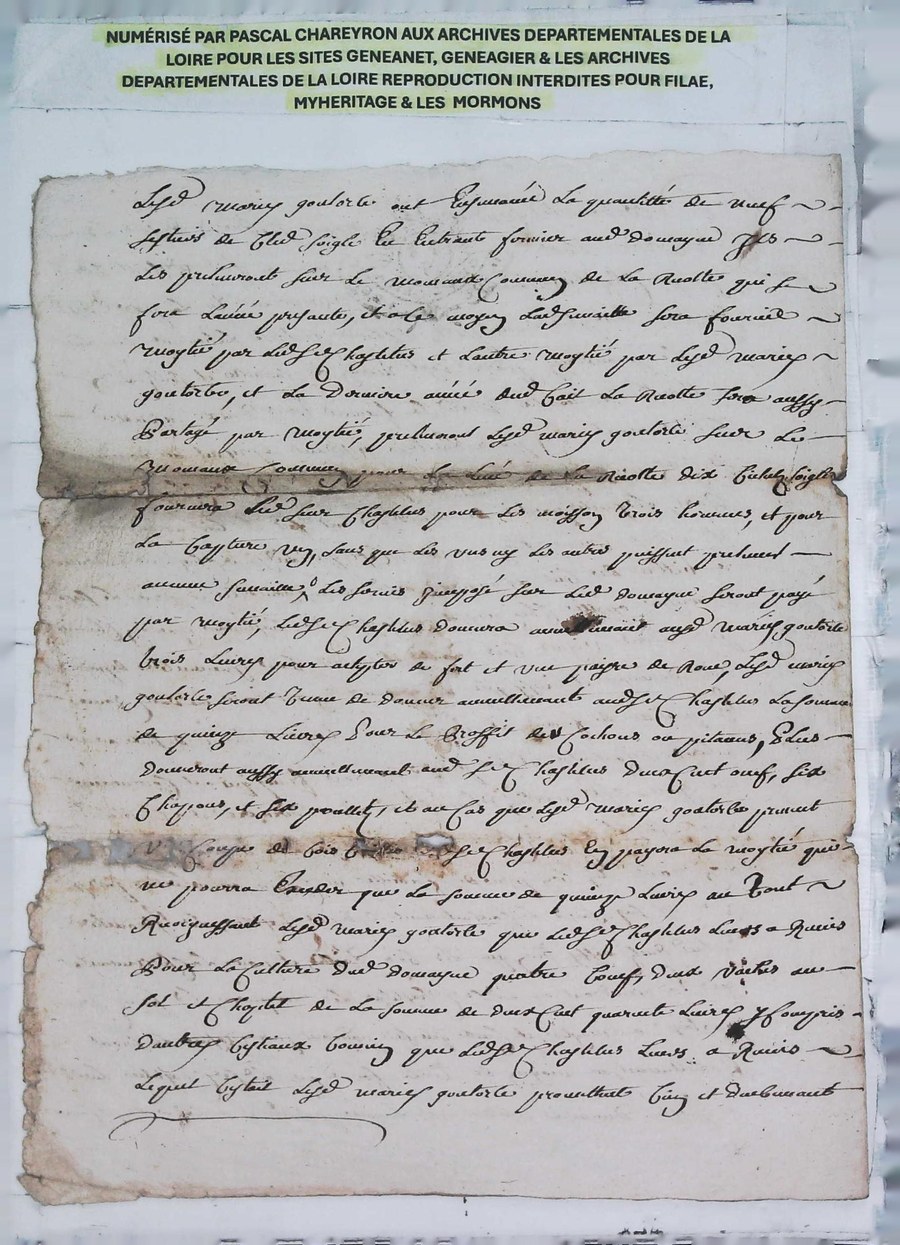 NUMÉRISÉ PAR PASCAL CHAREYRON AUX ARCHIVES DEPARTEMENTALES DE LA
LOIRE POUR LES SITES GENEANET, GENEAGIER & LES ARCHIVES
DEPARTEMENTALES DE LA LOIRE REPRODUCTION INTERDITES POUR FILAE,
MYHERITAGE & LES MORMONS
Lesd maries goutorbe ont la quantitté de neuf
de bled soigle En Entrants fermier aud domayne
Les sur le monceaux Commun de La Recolte qui se
fera Lannée presante, et a le moyen sera fournie
Moytié par Led Sr Chastelus et Lautre Moytié par Lesd maries
goutorbe, et La derniere année dud bail La Recolte sera aussy
Partagé par Moytié, Lesd maries goutorbe sur Le
Monceaux Commun pour de la Recolte dix soigle
fournira Led sieur Chastelus pour Les moisson Trois hommes, et pour
La un, sans que Les uns ny Les autres puissent
aucune Les sur Led domayne seront payé
par Moytié, Led Sr Chastelus donnera annuellement ausd Maries goutorbe
trois Livres pour de fert et une de Roue, Lesd maries
goutorbe seront Tenue de donner annuellement aud Sr Chastelus La somme
de quinze Livres Pour Le Proffit des Cochons ou Plus
donneront aussy annuellement aud Sr Chastelus deux Cent oeuf, six
Chapons, et six poullet, et au Cas que Lesd Maries goutorbe
Coupe de bois Sr Chastelus En payera La moytié qui
ne pourra Exceder que La somme de quinze Livres au Tout
Lesd Maries goutorbe que Led Sr Chastelus Leurs a Remis
Pour La Culture dud domayne quatre boeuf, deux vaches au
sol et Cheptel de La somme de deux Cent quarante Livres y Compris
dautres bestiaux que Led Sr Chastelus Leurs a Remis
Lequel Lesd maries goutorbe promettent bien et duebement